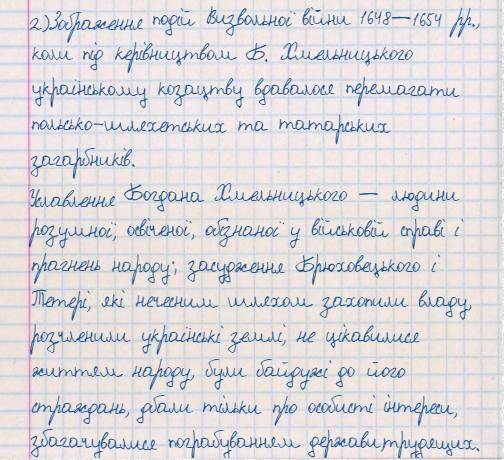 2) Зображення подій Визвольної війни 1648—1654 рр.,
коли під керівництвом Б. Хмельницького
українському козацтву вдавалося перемагати
польсько-шляхетських та татарських
загарбників.
Уславлення Богдана Хмельницького — людини
розумної, освіченої, обізнаної у військовій справі і
прагнень народу; засудження Брюховецького і
Тетері, які нечесним шляхом захопили владу,
розчленили українські землі, не цікавилися
життям народу, були байдужі до його
страждань, дбали тільки про особисті інтереси,
збагачувалися пограбуванням держави, трудящих.